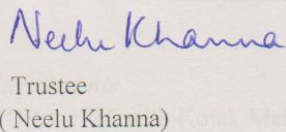 Neelu Khanna
Trustee
( Neelu Khanna)